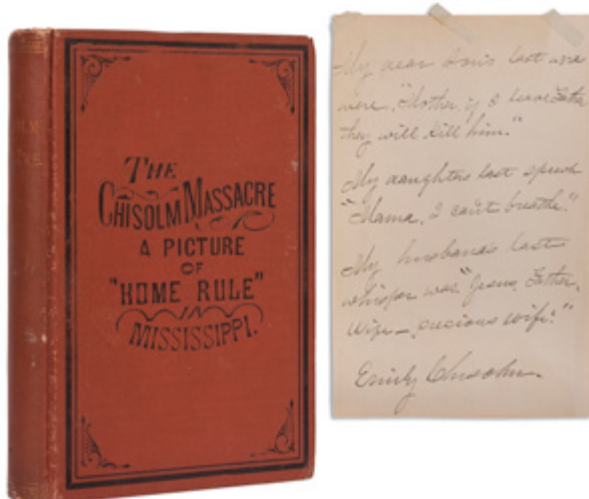 THE
CHISOLM MASSACRE
A PICTURE
OF
"HOME RULE"
IN
MISSISSIPPI.
My dear Son's last
were, "Mother, if I leave Father
they will kill him."
My daughters last speech
"Mama, I can't breathe."
My husband's last
whisper was "Jesus, Father,
Wife—precious wife."
Emily Chisolm.